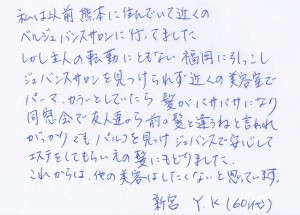 私は以前熊本に住んでいて近くの
ベルジュバンスサロンに行ってました
しかし主人の転勤にともない福岡に引っこし
ジュバンスサロンを見つけられず近くの美容室で
パーマ、カラーとしていたら髪がパサパサになり
同窓会で友人達から前の髪と違うねと言われ
がっかり でもパルコを見つけジュバンスで安心して
エステをしてもらい元の髪にもどりました。
これからは、他の美容はしたくないと思っています。
新宮 Y.K (60代)